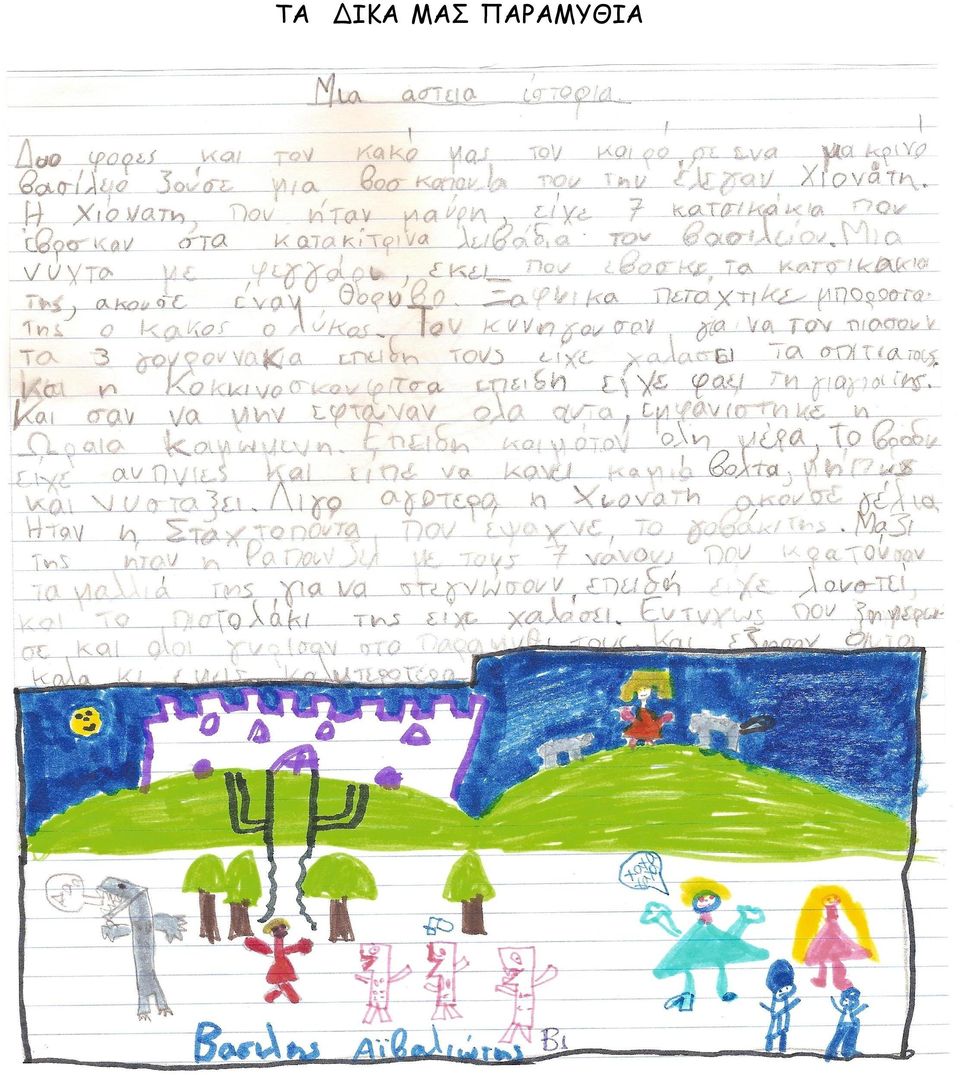 ΤΑ ΔΙΚΑ ΜΑΣ ΠΑΡΑΜΥΘΙΑ
Μια αστεια ιστορια.
Δυο φορες και τον κακό μας τον καιρό, σε ενα μακρινό
βασίλειο ζούσε μια βοσκοπουλα που την έλεγαν Χιονάτη.
Η Χιόνατη, που ήταν μαύρη, είχε 7 κατσικάκια που
έβροσκαν στα κατακίτρινα λειβάδια του βασιλείου. Μια
νύχτα με φεγγάρι, εκεί που έβοσκε τα κατσικακια
της, ακουσε έναν θόρυβο. Ξαφνικα πετάχτικε μπροστα
της ο κακος ο λύκος. Τον κυνηγουσαν για να τον πιασουν
τα 3 γουρουνακια επειδη τους είχε χαλασει τα σπιτια τους
και η Κοκκινοσκουφιτσα επειδη είχε φαει τη γιαγια της.
Και σαν να μην εφταναν ολα αυτα, εμφανιστηκε η
Ωραια Κοιμωμενη. Επειδη κοιμόταν όλη μέρα, το βραδυ
είχε αυπνιες και ειπε να κανει καμιά βολτα, μήπως
και νυσταξει. Λιγο αργοτερα η Χιονατη ακουσε γέλια
Ηταν η Σταχτοπουτα, που εψαχνε το γοβάκι της. Μαζι
της ηταν η Ραπουνζελ με τους 7 νάνους που κρατούσαν
τα μαλλιά της για να στεγνώσουν επειδή είχε λουστεί,
και το πιστολάκι της ειχε χαλάσει. Ευτυχως που ξημερω
σε και ολοι γυρισαν στο παραμυθι τους και εζησαν αυτοι
καλα κι εμεις καλυτεροτερα
Βασιλης Αϊβαλιώτης Β1